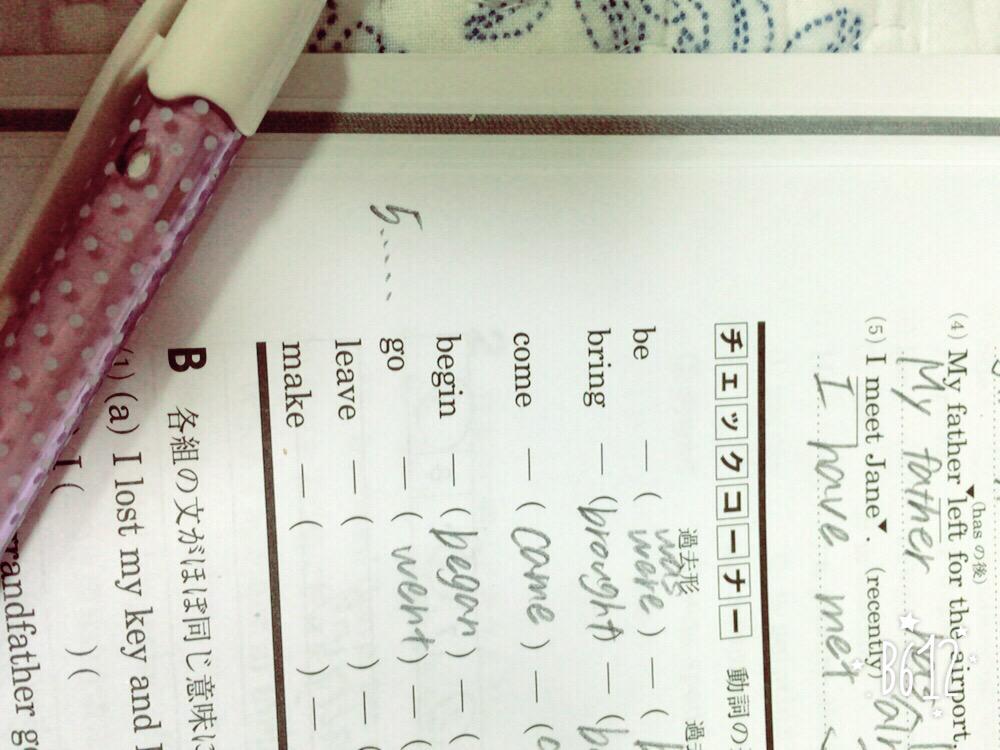 (4) My father left for the airport.
(has の後)
My father has
(5) I meet Jane. (recently)
I have met
チェックコーナー 動詞の
過去形 過
be — ( was were ) — (
bring — ( brought ) — ( b
come — ( came ) — ( c
begin — ( began ) — (
go — ( went ) — (
leave — ( ) — (
make — ( ) —
5.....
B 各組の文がほぼ同じ意味に
(1) (a) I lost my key and I
I ( ) (
grandfather g
B612